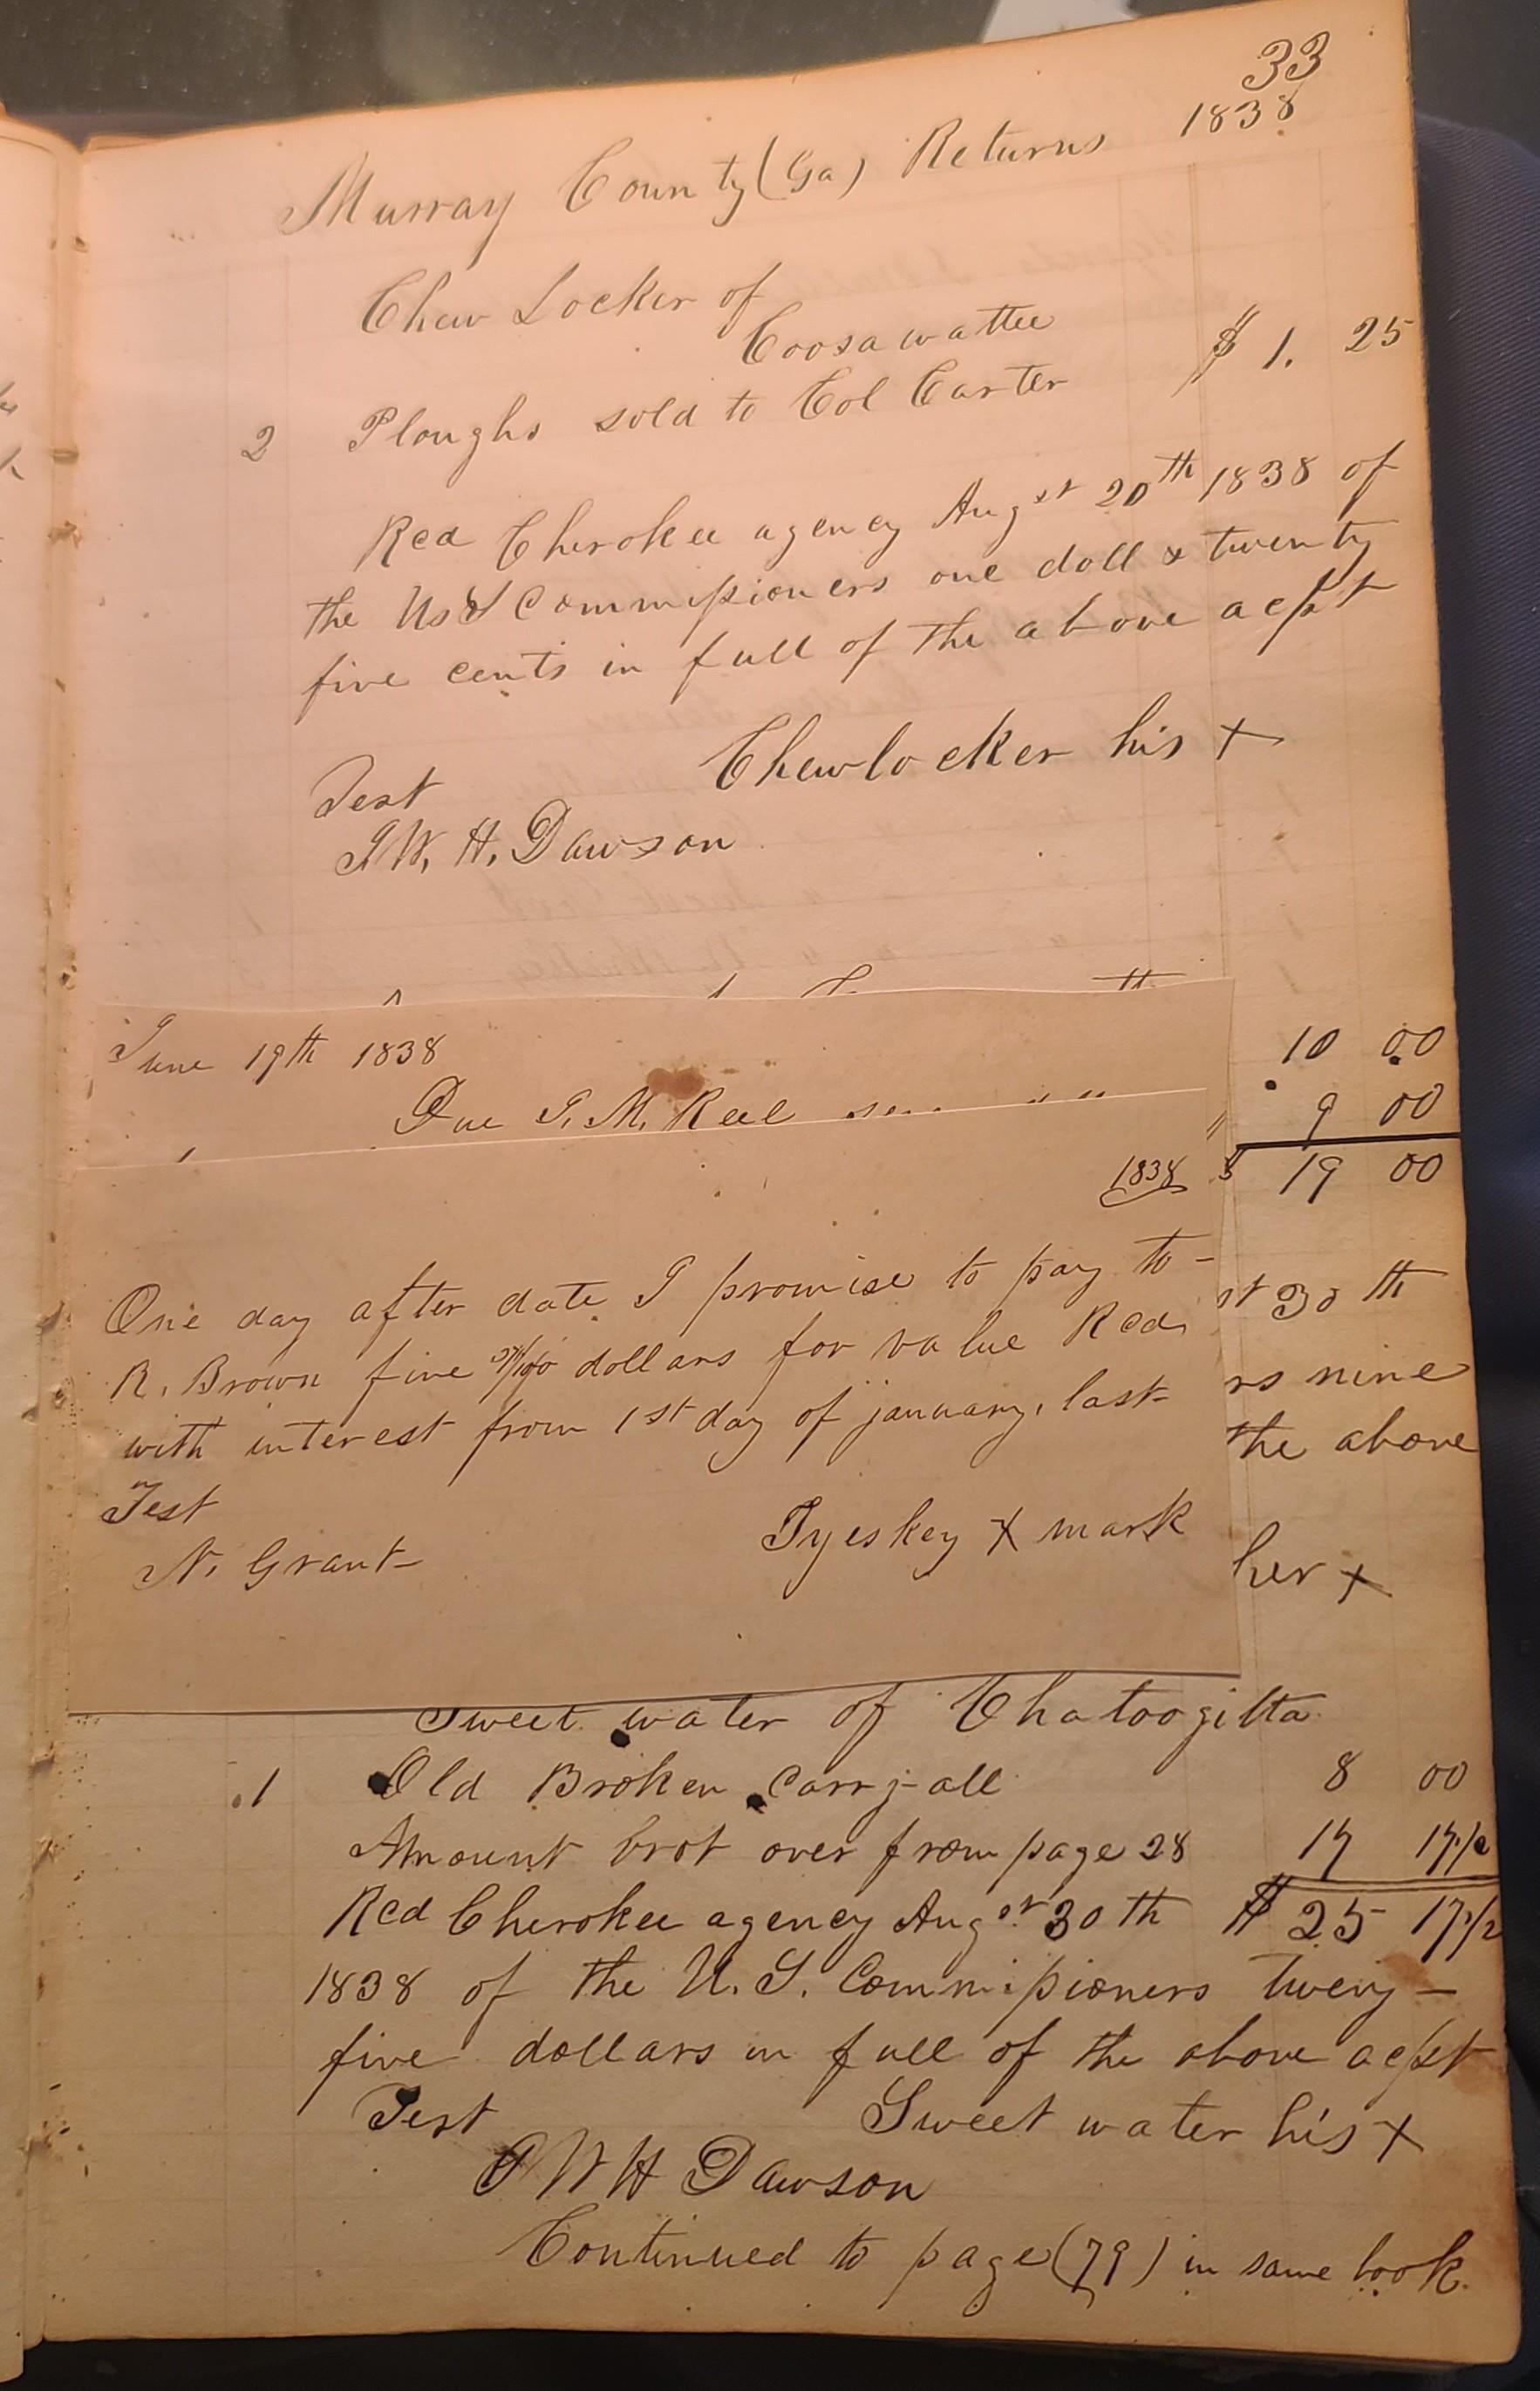 33
Murray County (Ga) Returns 1838
Chew Locker of
Coosawattee
2 Ploughs sold to Col Carter $ 1. 25
Recd Cherokee agency Augst 20th 1838 of
the Us S Commissioners one doll & twenty
five cents in full of the above acpt
Chewlocker his X
Test
J W. H. Dawson
10 00
June 19th 1838
9 00
Due J. M. Reel
$ 19 00
1838
One day after date I promise to pay to -
st 30 th
R. Brown five /100 dollars for value Recd
rs nine
with interest from 1st day of january, last
the above
Test
Tyeskey X mark
her X
N. Grant
Sweet water of Chatoogitta
1 Old Broken Carry-all 8 00
Amount brot over from page 28 17 17 1/2
Recd Cherokee agency Augst 30 th $ 25 17 1/2
1838 of the U. S. Commissioners tweny -
five dollars in full of the above acpt
Test Sweet water his X
J W H Dawson
Continued to page (79) in same book.